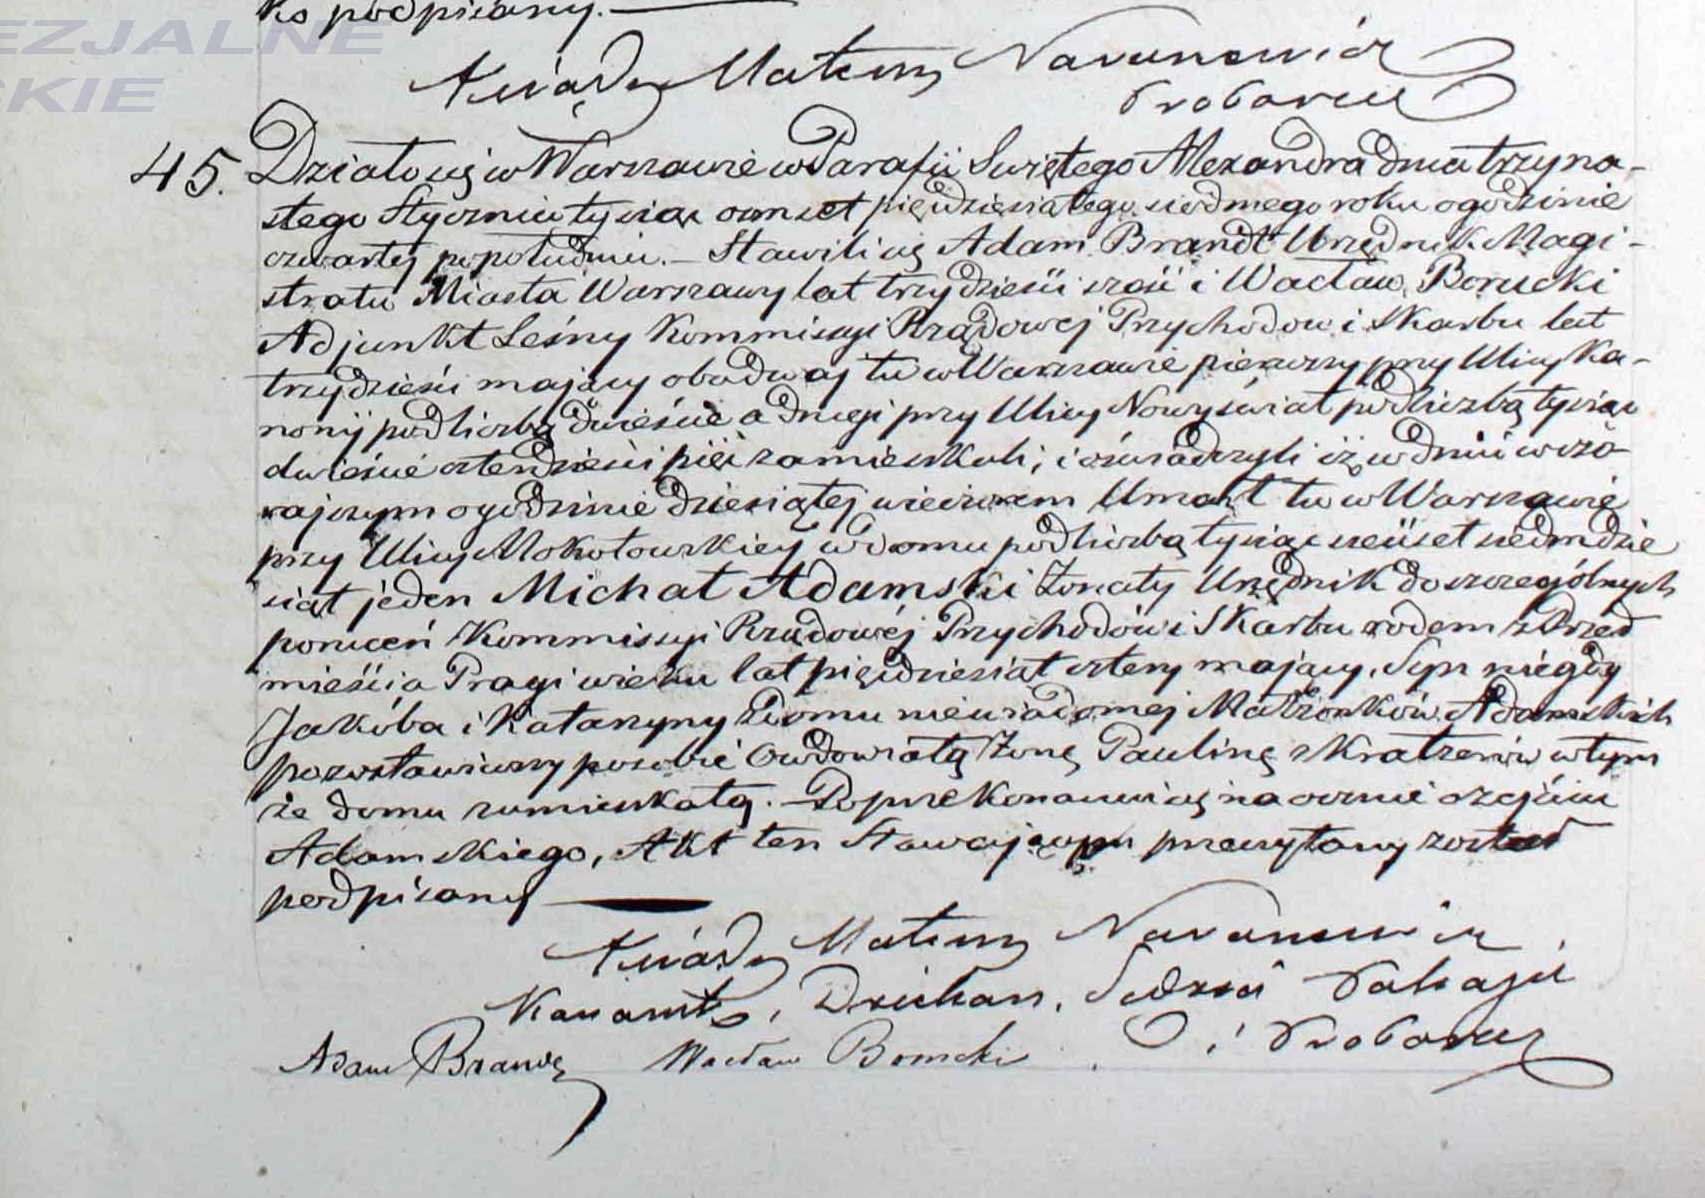 EZJALNE
SKIE
ko podpisany.
Ksiądz Mateusz
Proboszcz
45. Działo się w Warszawie w Parafii Swiętego Alexandra dnia trzyna-
stego Stycznia tysiąc ośmset pięćdziesiątego siodmego roku o godzinie
czwartej popołudniu. – Stawili się Adam Brandt Urzędnik Magi-
stratu Miasta Warszawy lat trzydzieści sześć i Wacław Borucki
Adjunkt Leśny Kommissyi Rządowej Przychodow i Skarbu lat
trzydzieści mający obadwaj tu w Warszawie pierwszy przy Ulicy Ka-
nonij pod liczbą dwieście a drugi przy Ulicy Nowyświat pod liczbą tysiąc
dwieście czterdzieści pięć zamieszkali, i oświadczyli iż w dniu wczo-
rajszym o godzinie dziesiątej wieczorem Umarł tu w Warszawie
przy Ulicy Mokotowskiey w domu pod liczbą tysiąc sześćset siedmdzie
siąt jeden Michał Adamski Żonaty Urzędnik do szczególnych
poruceń Kommissyi Rządowéj Przychodów i Skarbu rodem z Przed
mieścia Pragi wieku lat pięćdziesiąt cztery mający, Syn niegdy
Jakóba i Katarzyny z domu niewiadomej Małżonków Adamskich
pozostawiwszy po sobie Owdowiałą Żonę Paulinę z Kratzerów w tym
że domu zamieszkałą. – Po przekonaniu się naocznie o zejściu
Adamskiego, Akt ten Stawającym przeczytany został
podpisany
Ksiądz Mateusz
Kanonik, Dziekan, Sędzia Pokoju
i Proboszcz
Adam Brandt Wacław Borucki